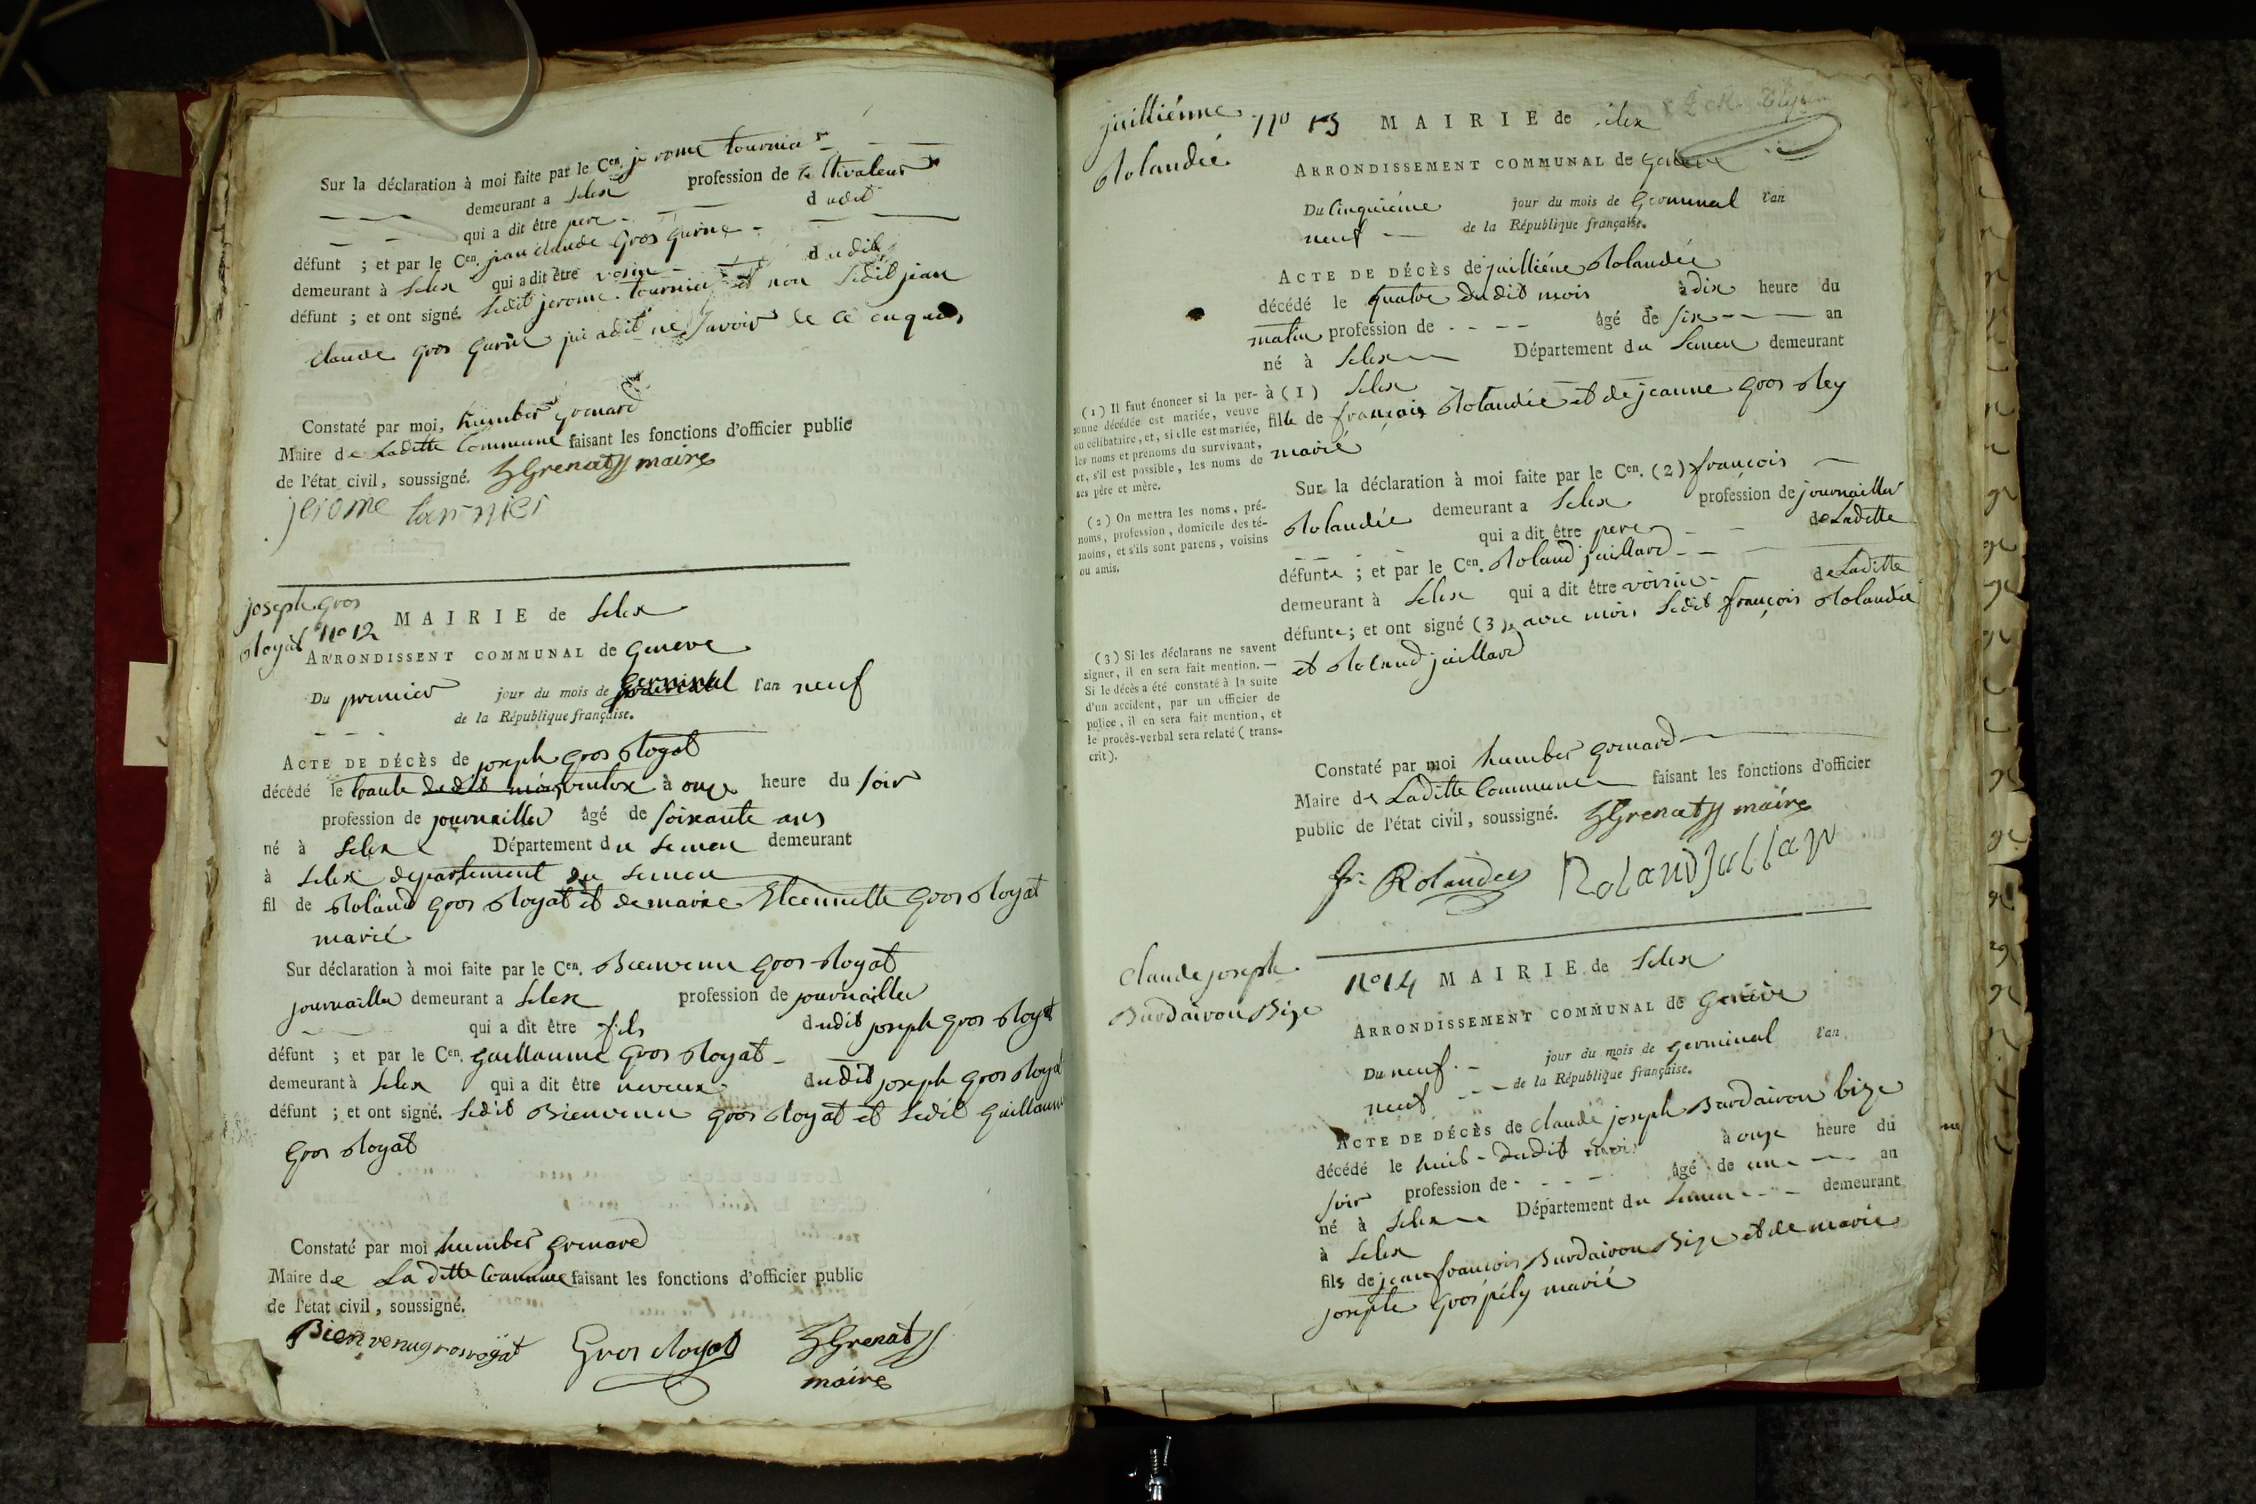 Sur la déclaration à moi faite par le Cen. jerome tournier
demeurant a Lelex profession de Cultivateur
qui a dit être pere dudit
défunt ; et par le Cen. jean claude Gros Gurin
demeurant à Lelex qui a dit être voisin dudit
défunt ; et ont signé. Ledit jerome tournier et non Ledit jean
claude gros Gurin qui a dit ne savoir de ce enquis
Constaté par moi, humber grenard
Maire de Laditte Commune faisant les fonctions d'officier public
de l'état civil, soussigné. hGrenat maire
jerome tournier
joseph gros
Royat No 12
MAIRIE de Lelex
ARRONDISSENT COMMUNAL de Geneve
Du premier jour du mois de Germinal l'an neuf
de la République française.
ACTE DE DÉCÈS de joseph Gros Royat
décédé le trante dudit mois ventose à onze heure du soir
profession de journaillier âgé de soixante ans
né à Lelex Département du Leman demeurant
à Lelex departement du Leman
fil de Roland Gros Royat et de marie Etiennette Gros Royat
marié
Sur déclaration à moi faite par le Cen. Bienvenu Gros Royat
journaillier demeurant a Lelex profession de journaillier
qui a dit être fils dudit joseph gros Royat
défunt ; et par le Cen. Guillaume Gros Royat
demeurant à Lelex qui a dit être neveux dudit joseph Gros Royat
défunt ; et ont signé. Ledit Bienvenu Gros Royat et Ledit Guillaume
Gros Royat
Constaté par moi humber Grenard
Maire de La ditte Commune faisant les fonctions d'officier public
de l'état civil, soussigné.
Bienvenu gros royat Gros Royat hGrenat
maire
juilliénne
Rolandée
No 13 MAIRIE de Lelex
ARRONDISSEMENT COMMUNAL de Geneve
Du Cinquiéme jour du mois de Germinal l'an
neuf de la République française.
ACTE DE DÉCÈS de juilliéne Rolandée
décédé le quatre dudit mois à dix heure du
matin profession de - - - - âgé de six an
né à Lelex Département du Leman demeurant
à (1) Lelex
fille de françois Rolandée et de jeanne Gros Rey
marié
(1) Il faut énoncer si la per-
sonne décédée est mariée, veuve
ou célibataire, et, si elle est mariée,
les noms et prénoms du survivant,
et, s'il est possible, les noms de
ses père et mère.
Sur la déclaration à moi faite par le Cen. (2) françois
Rolandée demeurant a Lelex profession de journaillier
qui a dit être pere de Laditte
défunte ; et par le Cen. Roland juillard
demeurant à Lelex qui a dit être voisin de Laditte
défunte ; et ont signé (3) avec moi Ledit françois Rolandée
et Roland juillard
(2) On mettra les noms, pré-
noms, profession, domicile des té-
moins, et s'ils sont parens, voisins
ou amis.
(3) Si les déclarans ne savent
signer, il en sera fait mention. —
Si le décès a été constaté à la suite
d'un accident, par un officier de
police, il en sera fait mention, et
le procès-verbal sera relaté (trans-
crit).
Constaté par moi humber grenard
Maire de Laditte Commune faisant les fonctions d'officier
public de l'état civil, soussigné. hGrenat maire
fr. Rolandez Roland Jullar
claude joseph
Burdairon Bize
No 14 MAIRIE de Lelex
ARRONDISSEMENT COMMUNAL de Genéve
Du neuf jour du mois de germinal l'an
neuf de la République française.
ACTE DE DÉCÈS de claude joseph Burdairon bize
décédé le huit dudit mois à onze heure du
soir profession de - - - - âgé de un an
né à Lelex Département du Leman demeurant
à Lelex
fils de jean françois Burdairon Bize et de marie
josephe Gros pély marié